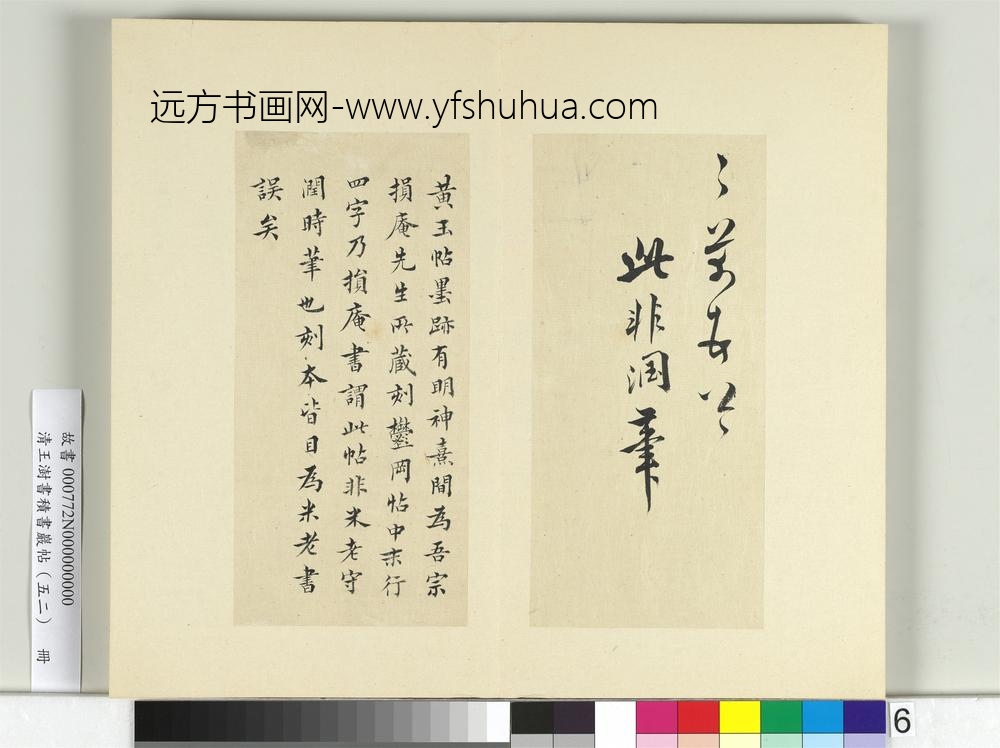 远方书画网-www.yfshuhua.com
此非润筆
黄玉帖墨跡有明神熹間為吾宗
損庵先生所蔵刻鬱岡帖中末行
四字乃損庵書謂此帖非米老守
潤時筆也刻本皆目為米老書
誤矣
故書 000772N000000000
清王澍書積書巖帖（五二） 冊
6